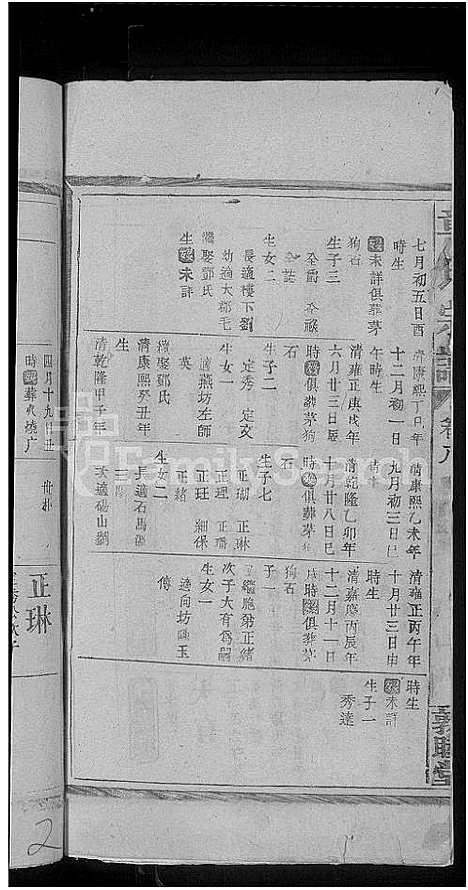 卷八
敦睦堂
七月初五日酉
時生
歿未詳俱葬茅
狗石
生子三
生女二
長適樓下劉
幼適大郡毛
繼娶鄧氏
生歿未詳
清康熙丁巳年
十二月初一日
午時生
清雍正庚戌年
六月廿三日辰
時歿俱葬茅狗
石
生子二
定秀 定文
生女一
適燕坊左師
英
續娶鄧氏
清康熙癸丑年
生
清乾隆甲子年
清康熙乙未年
九月初三日巳
時生
清乾隆乙卯年
十月廿八日巳
時歿俱葬茅狗
石
生子七
正瑚 正琳
正理 正璠
正玨 細保
正緒
生女二
長適石馬
次適碭山劉
清雍正丙午年
十月廿三日申
時生
清嘉慶丙辰年
十二月十一日
時歿俱葬茅
狗石
子一
繼胞弟正緒
次子大有爲嗣
生女一
適向坊 玉
傅
時生
歿未詳
生子一
秀達
四月十九日丑
時歿葬火燒广
正琳
2
FamilySearch